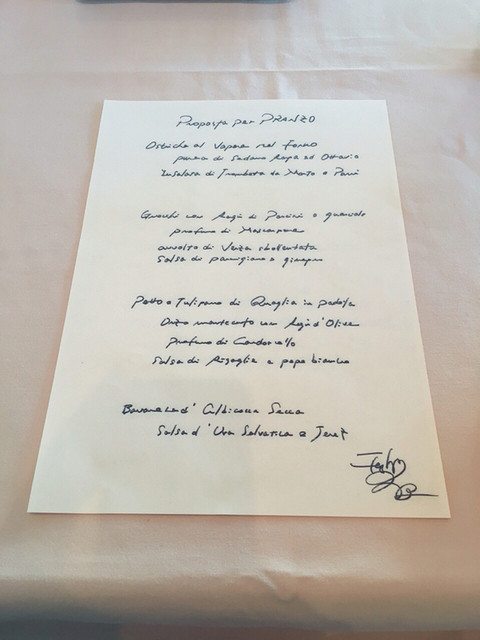 Proposta per PRANZO
Ostriche al Vapore nel forno
purea di Sedano Rapa ed
Insalata di Trombetta da Morto e Porri
Gnocchi con Ragù di Porcini e guanciale
profumo di Mascarpone
avvolto di Verza sbollentata
Salsa di parmigiano e ginepro
Petto e Tulipano di Quaglia in padella
Orzo mantecato con Ragù d'Olive
profumo di Cardoncello
Salsa di e pepe bianco
Bavarese d' Albicocca Secca
Salsa d' Uva Selvatica e